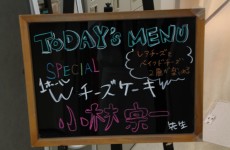 TODAY'S MENU
SPECIAL
レアチーズと
ベイクドチーズの
Wチーズケーキ
小林宗一
先生